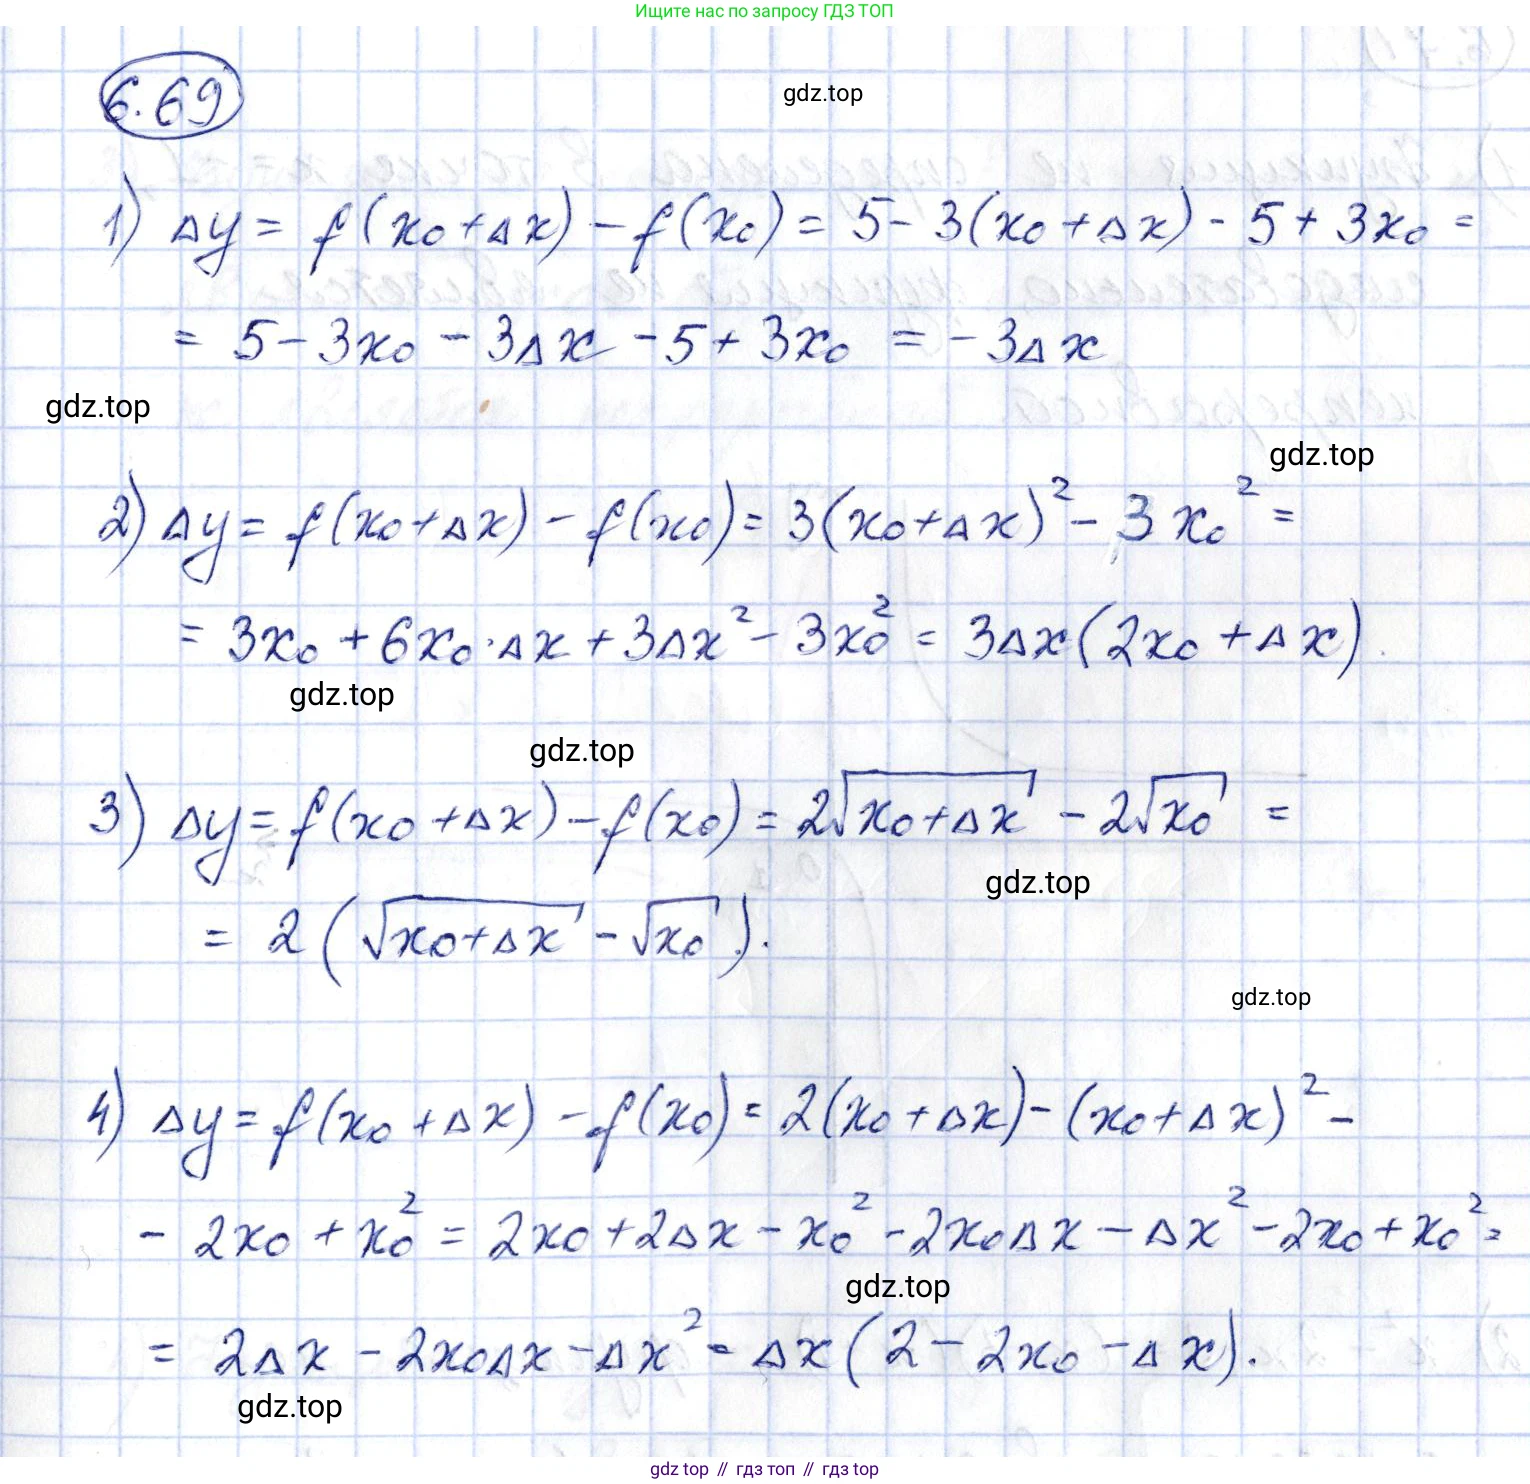 Ищите нас по запросу ГДЗ ТОП
6.69
gdz.top
1) Δy = f(x₀+Δx) - f(x₀) = 5 - 3(x₀+Δx) - 5 + 3x₀ =
= 5 - 3x₀ - 3Δx - 5 + 3x₀ = -3Δx
gdz.top
gdz.top
2) Δy = f(x₀+Δx) - f(x₀) = 3(x₀+Δx)² - 3x₀² =
= 3x₀ + 6x₀·Δx + 3Δx² - 3x₀² = 3Δx(2x₀+Δx).
gdz.top
gdz.top
3) Δy = f(x₀+Δx) - f(x₀) = 2√(x₀+Δx) - 2√x₀ =
gdz.top
= 2(√(x₀+Δx) - √x₀).
gdz.top
4) Δy = f(x₀+Δx) - f(x₀) = 2(x₀+Δx) - (x₀+Δx)² -
- 2x₀ + x₀² = 2x₀ + 2Δx - x₀² - 2x₀Δx - Δx² - 2x₀ + x₀² =
gdz.top
= 2Δx - 2x₀Δx - Δx² = Δx(2 - 2x₀ - Δx).
gdz.top
gdz top // гдз топ // гдз top